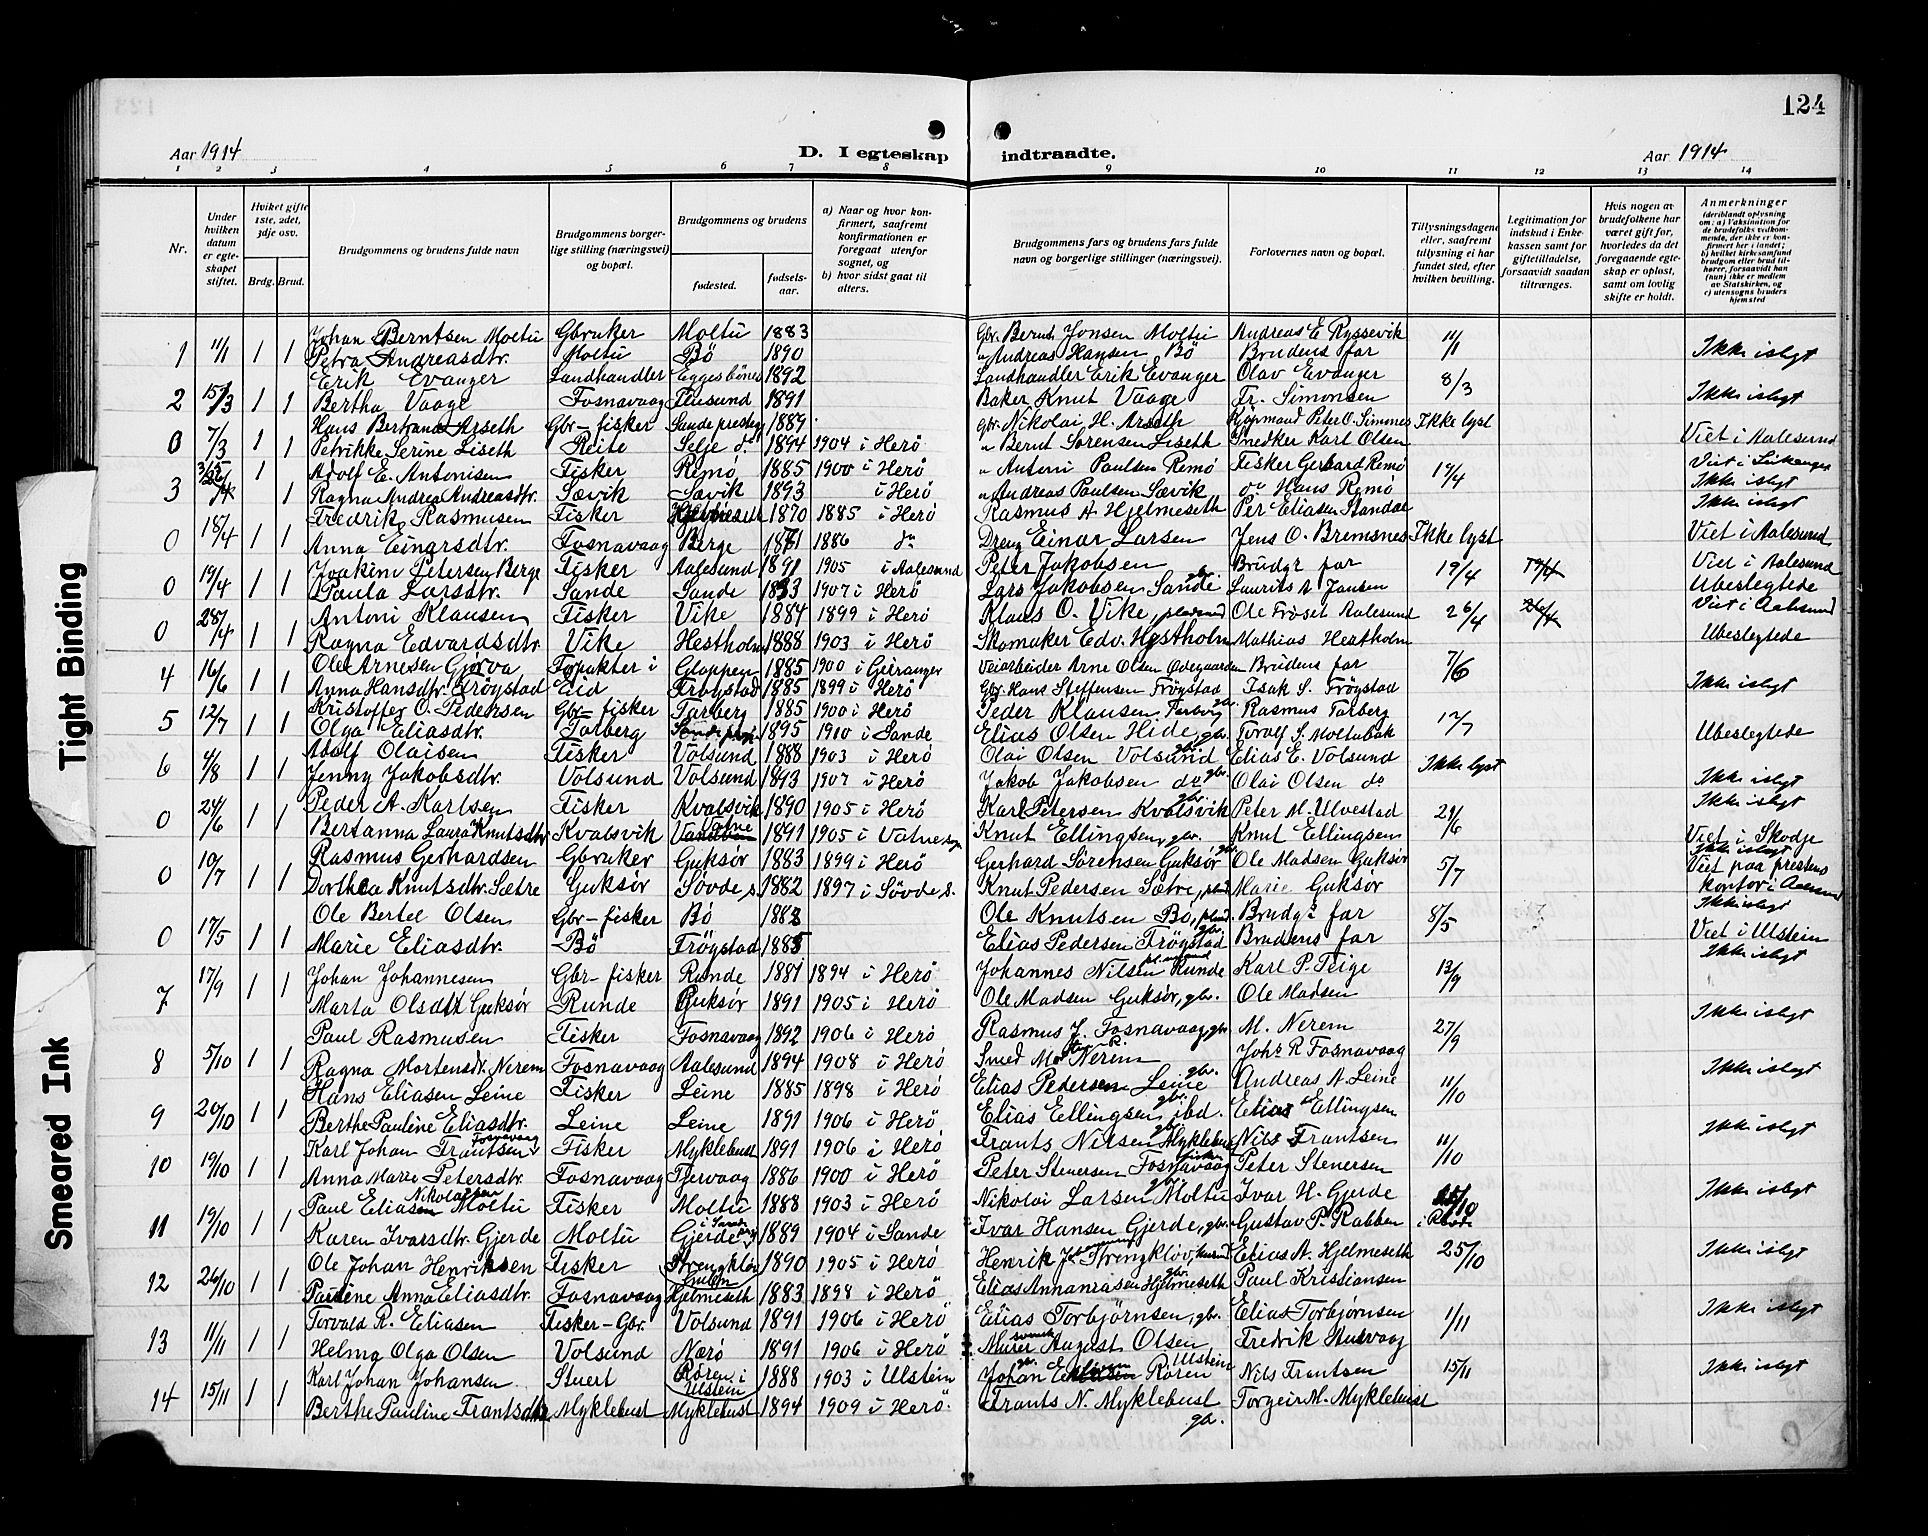 124
Aar 1914
D. I egteskap indtraadte.
Aar 1914
1 2 3 4 5 6 7 8 9 10 11 12 13 14
Nr.
Under hvilken datum er egteskapet stiftet.
Hviket gifte 1ste, 2det, 3dje osv.
Brdg. Brud.
Brudgommens og brudens fulde navn
Brudgommens borgerlige stilling (næringsvei) og bopæl.
Brudgommens og brudens
fødested.
fødselsaar.
a) Naar og hvor konfirmert, saafremt konfirmationen er foregaat utenfor sognet, og
b) hvor sidst gaat til alters.
Brudgommens fars og brudens fars fulde navn og borgerlige stillinger (næringsvei).
Forlovernes navn og bopæl.
Tillysningsdagene eller, saafremt tillysning ei har fundet sted, efter hvilken bevilling.
Legitimation for indskud i Enkekassen samt for giftetilladelse, forsaavidt saadan tiltrænges.
Hvis nogen av brudefolkene har været gift for, hvorledes da det foregaaende egteskap er opløst, samt om lovlig skifte er holdt.
Anmerkninger
(deriblandt oplysning om: a) Vaksination for de brudefolks vedkommende, der ikke er konfirmert her i landet; b) hvilket kirkesamfund brudgom eller brud tilhører, forsaavidt han (hun) ikke er medlem av Statskirken, og c) utensogns bruders hjemsted
Johan Berntsen Moltu Gbruker Moltu 1883 Gbr. Bernt Jonsen Moltu Andreas E Ryssevik
1 11/1 1 1 Petra Andreasdtr. Moltu Bö 1890 " Andreas Hansen Bö Brudens far 11/1 Ikke islgt
Erik Evanger Landhandler Eggesbönes 1892 Landhandler Erik Evanger Olav Evanger 8/3
2 15/3 1 1 Bertha Vaage Fosnavaag Flusund 1891 Baker Knut Vaage Fr. Simonsen Ikke islgt
Hans Bertrand Arseth Gbr-fisker Sande prestegj 1889 gbr. Nikolai H. Arseth Kjøpmand Peter O. Simmes Ikke lyst
0 7/3 1 1 Petrikke Serine Liseth Reite Selje d. 1894 1904 i Herö " Bernt Sørensen Liseth Snedker Karl Olsen Viet i Aalesund
Adolf E. Antonisen Fisker Remö 1885 1900 i Herö " Antoni Paulsen Remö Fisker Gerhard Remö 19/4
3 1 1 Ragna Andrea Andreasdtr. Sævik Sævik 1893 i Herö " Andreas Paulsen Sævik do Hans Remö Ikke islgt
Fredrik Rasmusen Fisker Hjelmeseth 1870 1885 i Herö Rasmus A Hjelmeseth Per Eliasen Standal Ikke islgt
0 18/4 1 1 Anna Einarsdtr. Fosnavaag Berge 1871 1886 do Dreng Einar Larsen Jens O. Bremsnes Ikke lyst Viet i Aalesund
Joakim Petersen Berge Fisker Aalesund 1891 1905 i Aalesund Peter Jakobsen Brudgs far 19/4 Viet i Aalesund
0 19/4 1 1 Paula Larsdtr. Sande Sande 1893 1907 i Herö Lars Jakobsen Sande Laurits A Jansen Ubeslegtede
Antoni Klausen Fisker Vike 1884 1899 i Herö Klaus O. Vike, Ole Frøset Aalesund 26/4 Viet i Aalesund
0 28/4 1 1 Ragna Edvardsdtr. Vike Hestholm 1888 1903 i Herö Skomaker Edv. Hestholm Mathias Hestholm Ubeslegtede
Ole Arnesen Gorva Forpakter i Gloppen 1885 1900 i Geiranger Veiarbeider Arne Olsen Ødegaarden Brudens far 7/6
4 16/6 1 1 Anna Hansdtr. Frøystad Eid Frøystad 1885 1899 i Herö Gbr. Hans Steffensen Frøystad Isak S. Frøystad Ikke islgt
Kristoffer O. Pedersen Gbr-fisker Tarberg 1885 1900 i Herö Peder Klausen Tarberg gbr. Rasmus Tarberg
5 12/7 1 1 Olga Eliasdtr. Tarberg 1895 1910 i Sande Elias Olsen Hide, gbr. Toralf S. Moltubak 12/7 Ubeslegtede
Adolf Olaisen Fisker Volsund 1888 1903 i Herö Olai Olsen Volsund gbr. Elias E. Volsund Ikke lyst
6 4/8 1 1 Jenny Jakobsdtr. Volsund Volsund 1893 1907 i Herö Jakob Jakobsen do gbr. Olai Olsen do Ikke islgt
Peder A. Karlsen Fisker Kvalsvik 1890 1905 i Herö Karl Petersen Kvalsvik gbr. Peter M. Ulvestad 21/6 Ikke islgt
0 24/6 1 1 Bertanna Laura Knutsdtr Kvalsvik Vatne 1891 1905 i Vatne Knut Ellingsen, gbr. Knut Ellingsen Viet i Skodje
Rasmus Gerhardsen Gbruker Guksør 1883 1899 i Herö Gerhard Sørensen Guksør gbr. Ole Madsen Guksør 5/7 Ikke islgt
0 10/7 1 1 Dorthea Knutsdtr. Sætre Guksør Søvde s. 1882 1897 i Søvde s. Knut Pedersen Sætre, Marie Guksør Viet paa prestens kontor i Aalesund
Ole Bertel Olsen Gbr-fisker Bö 1883 Ole Knutsen Bö, Brudgs far 8/5 Ikke islgt
0 17/5 1 1 Marie Eliasdtr. Bö Frøystad 1885 Elias Pedersen Frøystad gbr. Brudens far Viet i Ulstein
Johan Johannesen Gbr-fisker Runde 1881 1894 i Herö Johannes Nilsen Runde Karl P. Teige 13/9 Ikke islgt
7 17/9 1 1 Marta Olsdtr Guksør Runde Guksør 1891 1905 i Herö Ole Madsen Guksør, gbr. Ole Madsen Ikke islgt
Paul Rasmusen Fisker Fosnavaag 1892 1906 i Herö Rasmus J. Fosnavaag, gbr M. Nerem 27/9
8 5/10 1 1 Ragna Mortensdtr. Nerem Fosnavaag Aalesund 1894 1908 i Herö Smed Nerem Johs R Fosnavaag Ikke islgt
Hans Eliasen Leine Fisker Leine 1885 1898 i Herö Elias Pedersen Leine gbr. Andreas A Leine 11/10
9 20/10 1 1 Berthe Pauline Eliasdtr. Leine Leine 1891 1906 i Herö Elias Ellingsen ibd. gbr. Elias Ellingsen Ikke islgt
Karl Johan Frantsen Fosnavaag Fisker Myklebust 1891 1906 i Herö Frants Nilsen Myklebust gbr. Nils Frantsen 11/10
10 19/10 1 1 Anna Marie Petersdtr. Fosnavaag Tjervaag 1886 1900 i Herö Peter Stenersen Fosnavaag fisker Peter Stenersen Ikke islgt
Paul Eliasen Nikolaisen Moltu Fisker Moltu 1888 1903 i Herö Nikolai Larsen Moltu gbr. Ivar H. Gjerde
11 19/10 1 1 Karen Ivarsdtr. Gjerde Moltu Gjerde i Sande 1889 1904 i Sande Ivar Hansen Gjerde, gbr. Gustav P. Rabben Ikke islgt
Ole Johan Henriksen Fisker Strengklöv 1890 1905 i Herö Henrik Strengklöv, Elias A. Hjelmeseth 25/10
12 26/10 1 1 Pauline Anna Eliasdtr. Fosnavaag Hjelmeseth 1883 1898 i Herö Elias Annaniasen Hjelmeseth gbr. Paul Kristiansen Ikke islgt
Torvald R. Eliasen Fisker-Gbr. Volsund 1891 1906 i Herö Elias Torbjörnsen, gbr. Elias Torbjørnsen 1/11
13 11/11 1 1 Helma Olga Olsen Volsund Nærö 1891 1906 i Herö Murer August Olsen Fredrik Husvaag Ikke islgt
Karl Johan Johansen Stuert Røren i Ulstein 1888 1903 i Ulstein Johan Røren Ulstein Nils Frantsen 15/11
14 15/11 1 1 Berthe Pauline Frantsdtr Myklebust Myklebust 1894 1909 i Herö. Frants N. Myklebust gbr. Torgeir M. Myklebust Ikke islgt
Tight Binding
Smeared Ink